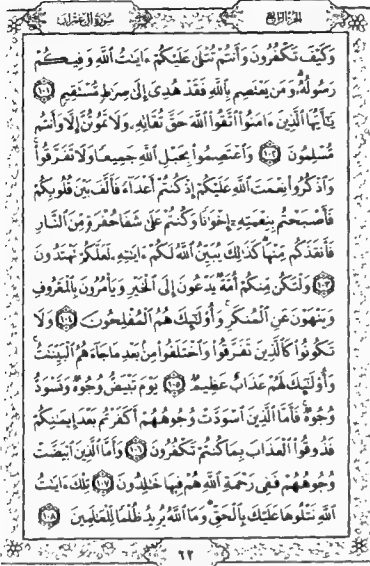 الجزء الرابع
سورة آل عمران
وَكَيْفَ تَكْفُرُونَ وَأَنتُمْ تُتْلَىٰ عَلَيْكُمْ ءَايَٰتُ ٱللَّهِ وَفِيكُمْ
رَسُولُهُۥ وَمَن يَعْتَصِم بِٱللَّهِ فَقَدْ هُدِىَ إِلَىٰ صِرَٰطٍ مُّسْتَقِيمٍ ١٠١
يَٰٓأَيُّهَا ٱلَّذِينَ ءَامَنُوا۟ ٱتَّقُوا۟ ٱللَّهَ حَقَّ تُقَاتِهِۦ وَلَا تَمُوتُنَّ إِلَّا وَأَنتُم
مُّسْلِمُونَ ١٠٢ وَٱعْتَصِمُوا۟ بِحَبْلِ ٱللَّهِ جَمِيعًا وَلَا تَفَرَّقُوا۟
وَٱذْكُرُوا۟ نِعْمَتَ ٱللَّهِ عَلَيْكُمْ إِذْ كُنتُمْ أَعْدَآءً فَأَلَّفَ بَيْنَ قُلُوبِكُمْ
فَأَصْبَحْتُم بِنِعْمَتِهِۦٓ إِخْوَٰنًا وَكُنتُمْ عَلَىٰ شَفَا حُفْرَةٍ مِّنَ ٱلنَّارِ
فَأَنقَذَكُم مِّنْهَا كَذَٰلِكَ يُبَيِّنُ ٱللَّهُ لَكُمْ ءَايَٰتِهِۦ لَعَلَّكُمْ تَهْتَدُونَ
١٠٣ وَلْتَكُن مِّنكُمْ أُمَّةٌ يَدْعُونَ إِلَى ٱلْخَيْرِ وَيَأْمُرُونَ بِٱلْمَعْرُوفِ
وَيَنْهَوْنَ عَنِ ٱلْمُنكَرِ وَأُو۟لَٰٓئِكَ هُمُ ٱلْمُفْلِحُونَ ١٠٤ وَلَا
تَكُونُوا۟ كَٱلَّذِينَ تَفَرَّقُوا۟ وَٱخْتَلَفُوا۟ مِنۢ بَعْدِ مَا جَآءَهُمُ ٱلْبَيِّنَٰتُ
وَأُو۟لَٰٓئِكَ لَهُمْ عَذَابٌ عَظِيمٌ ١٠٥ يَوْمَ تَبْيَضُّ وُجُوهٌ وَتَسْوَدُّ
وُجُوهٌ فَأَمَّا ٱلَّذِينَ ٱسْوَدَّتْ وُجُوهُهُمْ أَكَفَرْتُم بَعْدَ إِيمَٰنِكُمْ
فَذُوقُوا۟ ٱلْعَذَابَ بِمَا كُنتُمْ تَكْفُرُونَ ١٠٦ وَأَمَّا ٱلَّذِينَ ٱبْيَضَّتْ
وُجُوهُهُمْ فَفِى رَحْمَةِ ٱللَّهِ هُمْ فِيهَا خَٰلِدُونَ ١٠٧ تِلْكَ ءَايَٰتُ
ٱللَّهِ نَتْلُوهَا عَلَيْكَ بِٱلْحَقِّ وَمَا ٱللَّهُ يُرِيدُ ظُلْمًا لِّلْعَٰلَمِينَ ١٠٨
٦٣